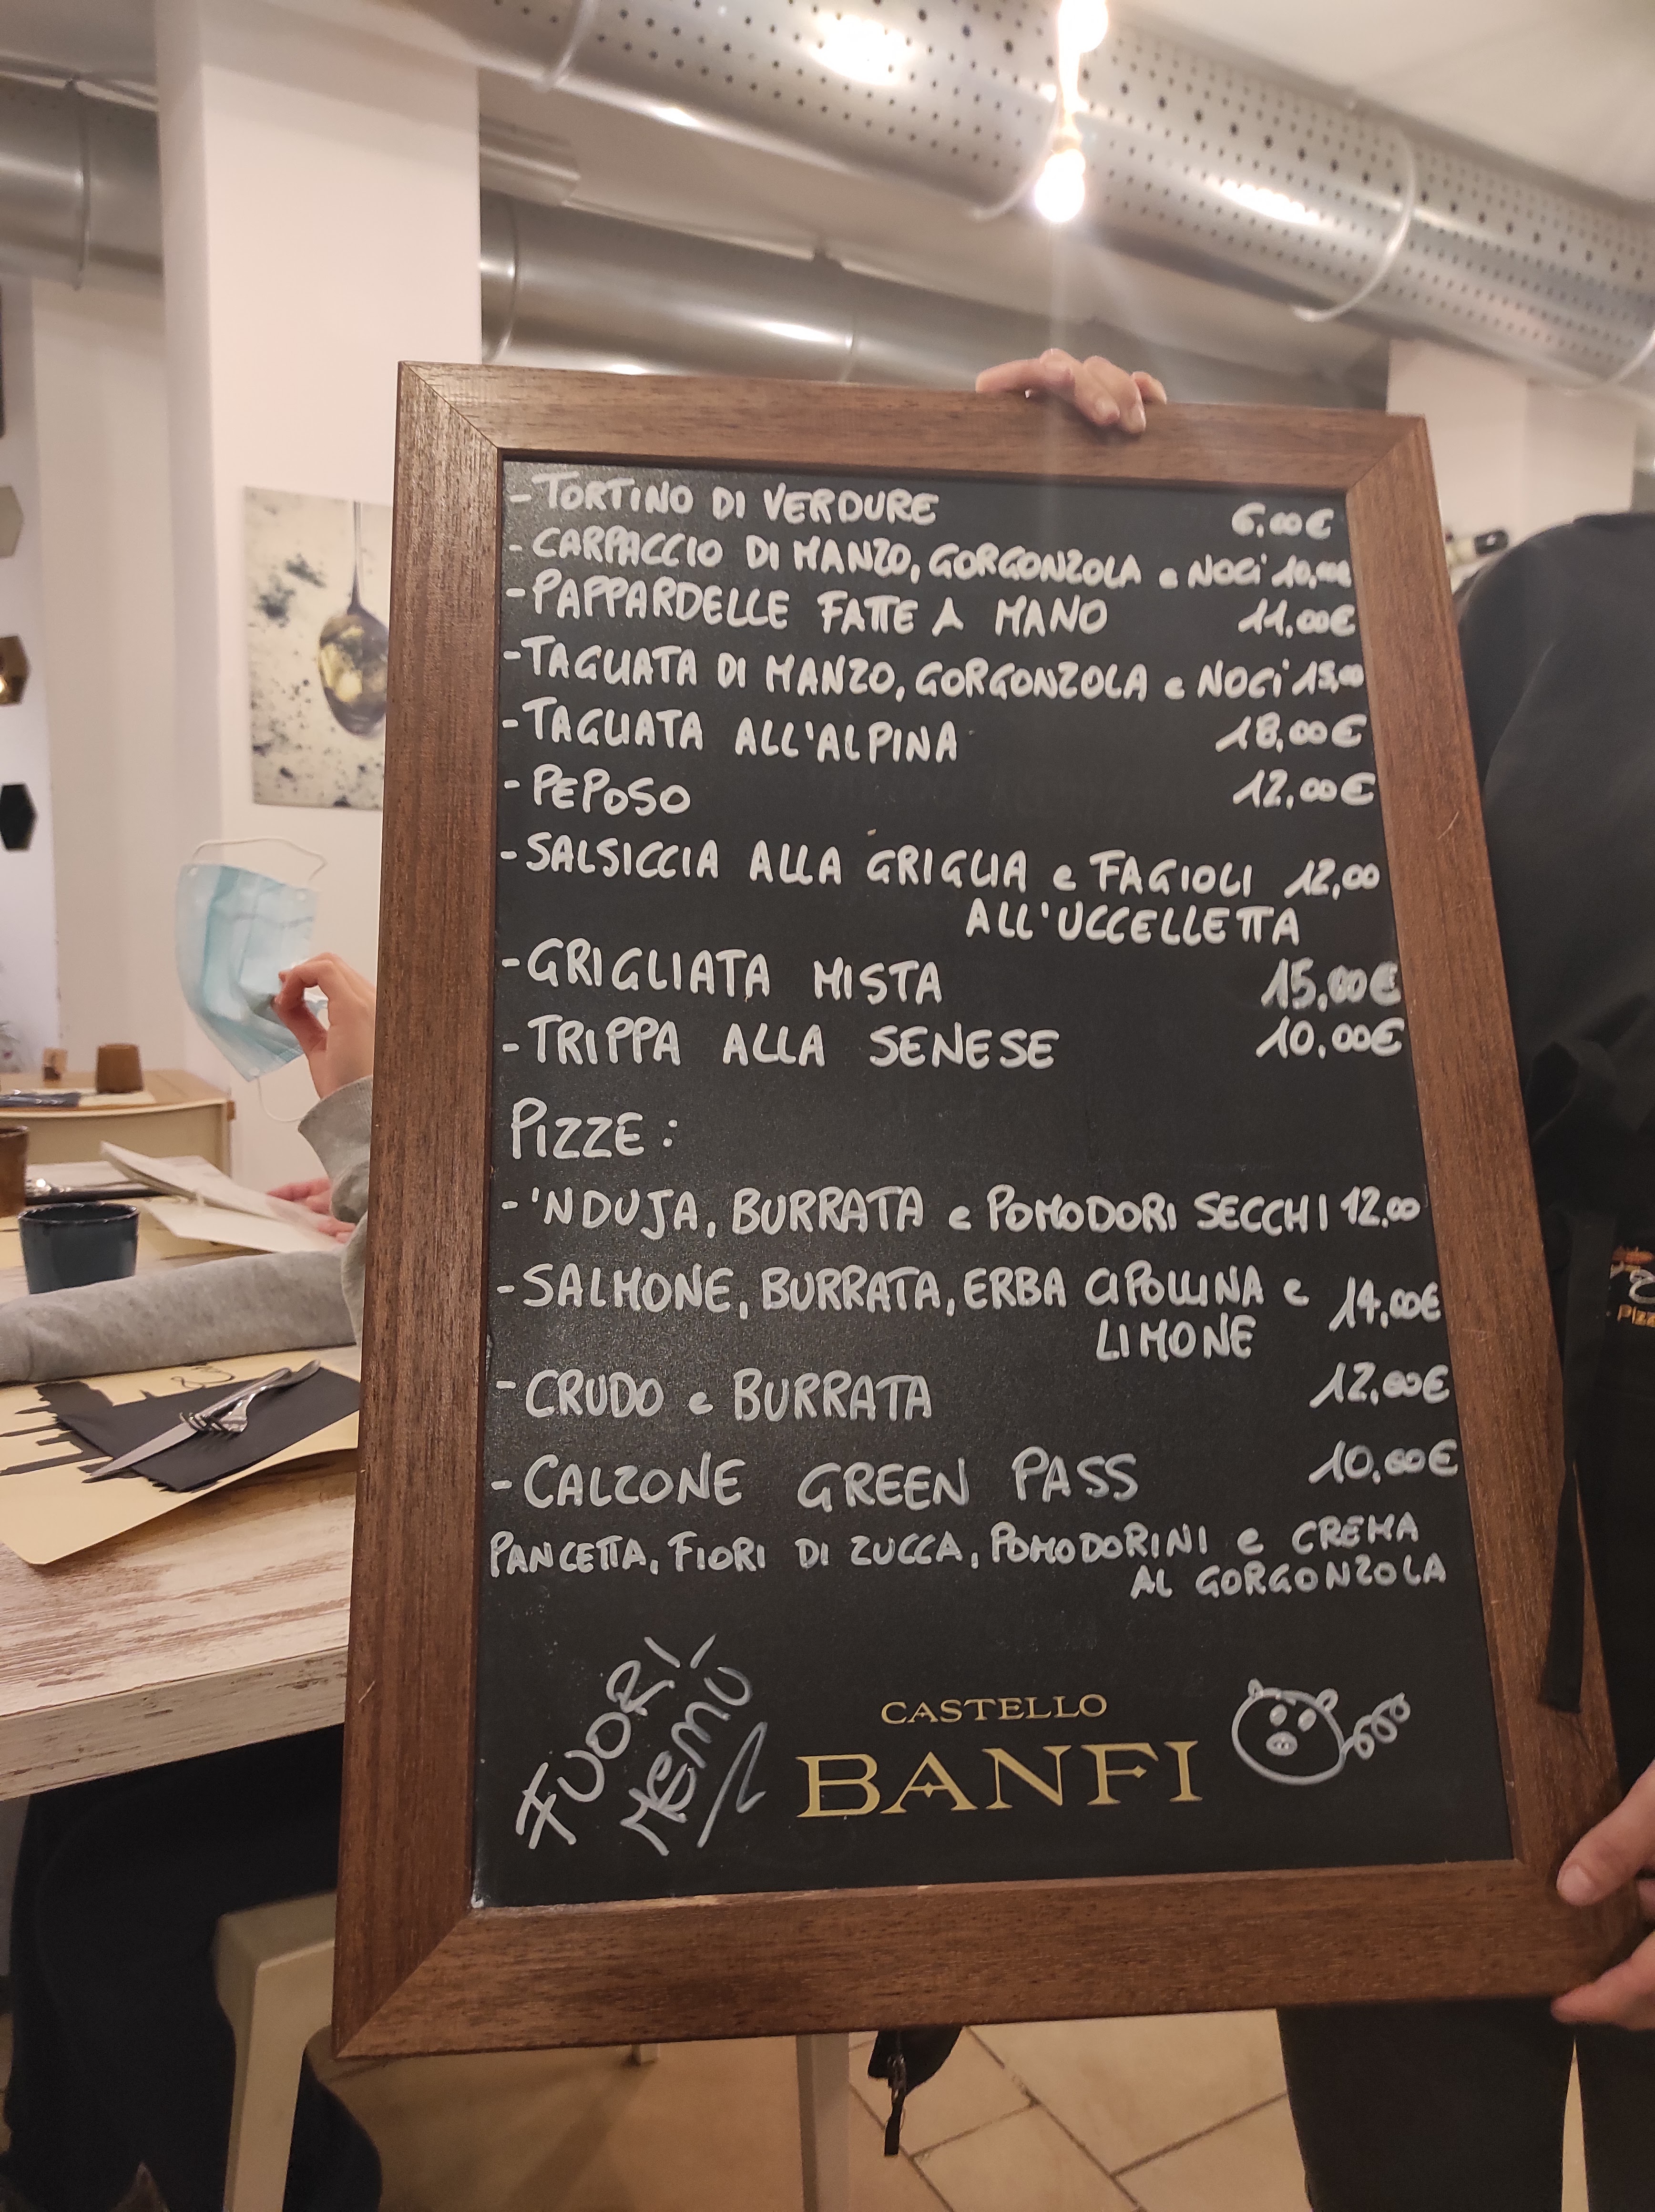 - TORTINO DI VERDURE 6,00€
- CARPACCIO DI MANZO, GORGONZOLA e NOCI 10,00€
- PAPPARDELLE FATTE A MANO 11,00€
- TAGLIATA DI MANZO, GORGONZOLA e NOCI 15,00
- TAGLIATA ALL'ALPINA 18,00€
- PEPOSO 12,00€
- SALSICCIA ALLA GRIGLIA e FAGIOLI 12,00
ALL'UCCELLETTA
- GRIGLIATA MISTA 15,00€
- TRIPPA ALLA SENESE 10,00€
PIZZE:
- 'NDUJA, BURRATA e POMODORI SECCHI 12,00
- SALMONE, BURRATA, ERBA CIPOLLINA e 14,00€
LIMONE
- CRUDO e BURRATA 12,00€
- CALZONE GREEN PASS 10,00€
PANCETTA, FIORI DI ZUCCA, POMODORINI e CREMA
AL GORGONZOLA
FUORI
MENÚ
CASTELLO
BANFI